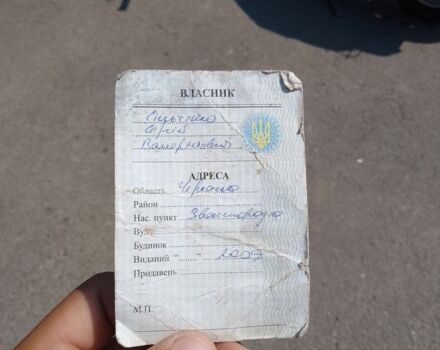 ВЛАСНИК
Сергій
Валерійович
АДРЕСА
Область Черкаська
Район
Нас. пункт Звенигородка
Вул.
Будинок
Виданий " " 2007
Продавець
М.П.